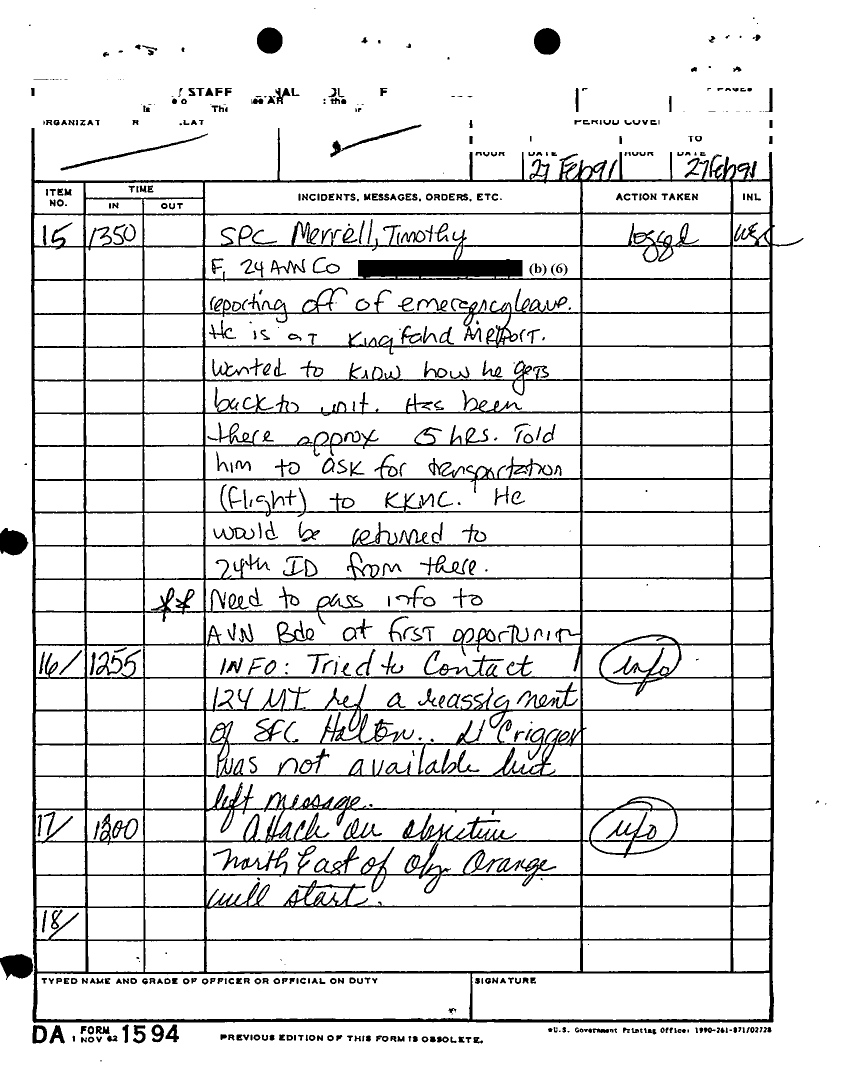 STAFF
PERIOD COVE
TO
HOUR DATE HOUR DATE
27 Feb 91 27 Feb 91
ITEM NO. TIME IN OUT INCIDENTS, MESSAGES, ORDERS, ETC. ACTION TAKEN INL
15 1350 SPC Merrell, Timothy logged
F, 24 AVN Co (b) (6)
reporting off of emeregncy leave.
He is at King Fahd Airport.
Wanted to know how he gets
back to unit. Has been
there approx 5 hrs. Told
him to ask for transportation
(flight) to KKMC. He
would be returned to
24th ID from there.
** Need to pass info to
AVN Bde at first opportunity
16/ 1255 INFO: Tried to Contact info
124 MT ref a reassignment
of SFC Halton.. Lt Crigger
was not available but
left message.
17/ 1300 Attack on objective info
North East of Obj Orange
will start.
18/
TYPED NAME AND GRADE OF OFFICER OR OFFICIAL ON DUTY SIGNATURE
DA FORM 1 NOV 62 1594 PREVIOUS EDITION OF THIS FORM IS OBSOLETE. *U.S. Government Printing Office: 1990-261-871/02728